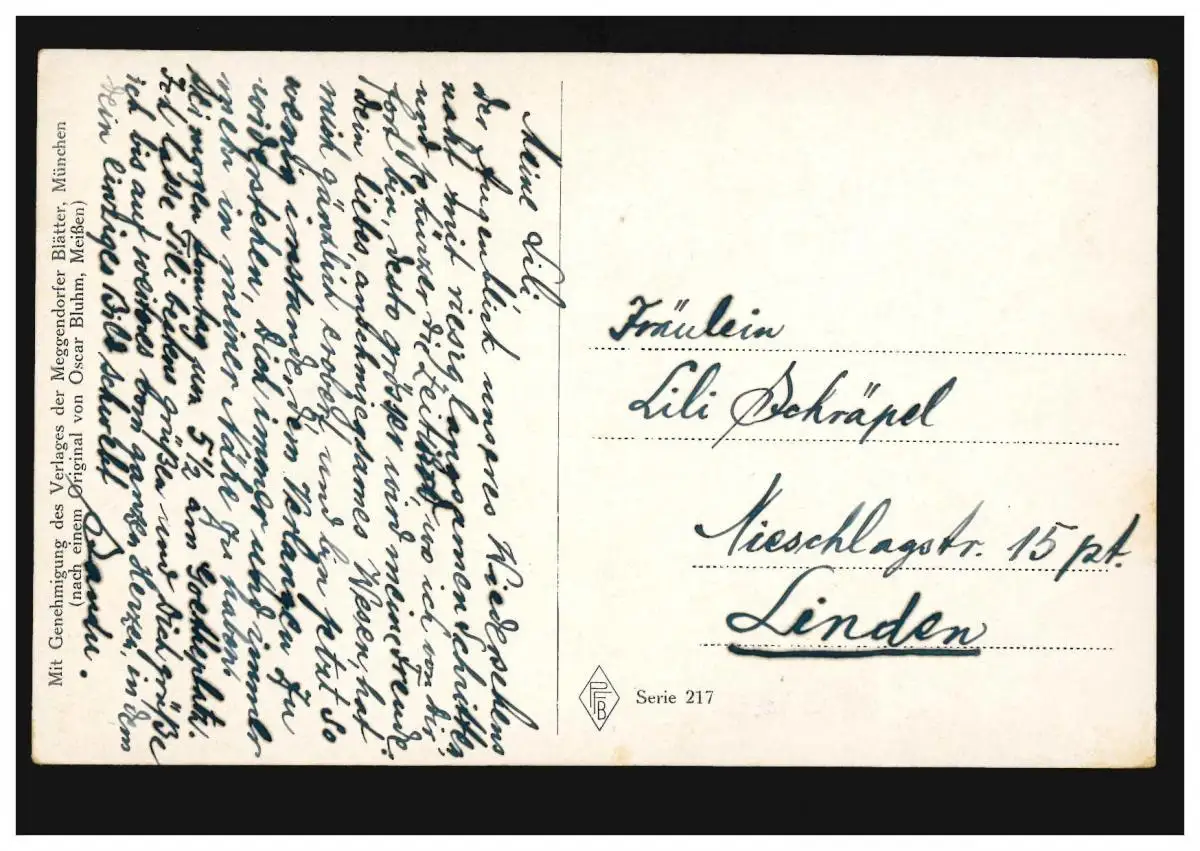 Meine Lili,
der Augenblick unseres Wiedersehens
naht mit riesig langsamen Schritten
und je kürzer die Zeit ist, wo ich von dir
fort bin, desto grösser wird meine Freude.
Dein liebes, anschmiegsames Wesen, hat
mich gänzlich erobert und bin jetzt so
wenig imstande, dem Verlangen zu
widerstehen, dich immer und immer
mehr in meiner Nähe zu haben.
Bei morgen Sonntag um 5½ am Goetheplatz.
Ich lasse Lili bestens grüßen und Dich grüße
ich bis auf weiteres vom ganzen Herzen, in dem
dein einziges Bild schwebt
Mit Genehmigung des Verlages der Meggendorfer Blätter, München
(nach einem Original von Oscar Bluhm, Meißen)
Fräulein
Lili Schräpel
Nieschlagstr. 15 pt.
Linden
PFB
Serie 217